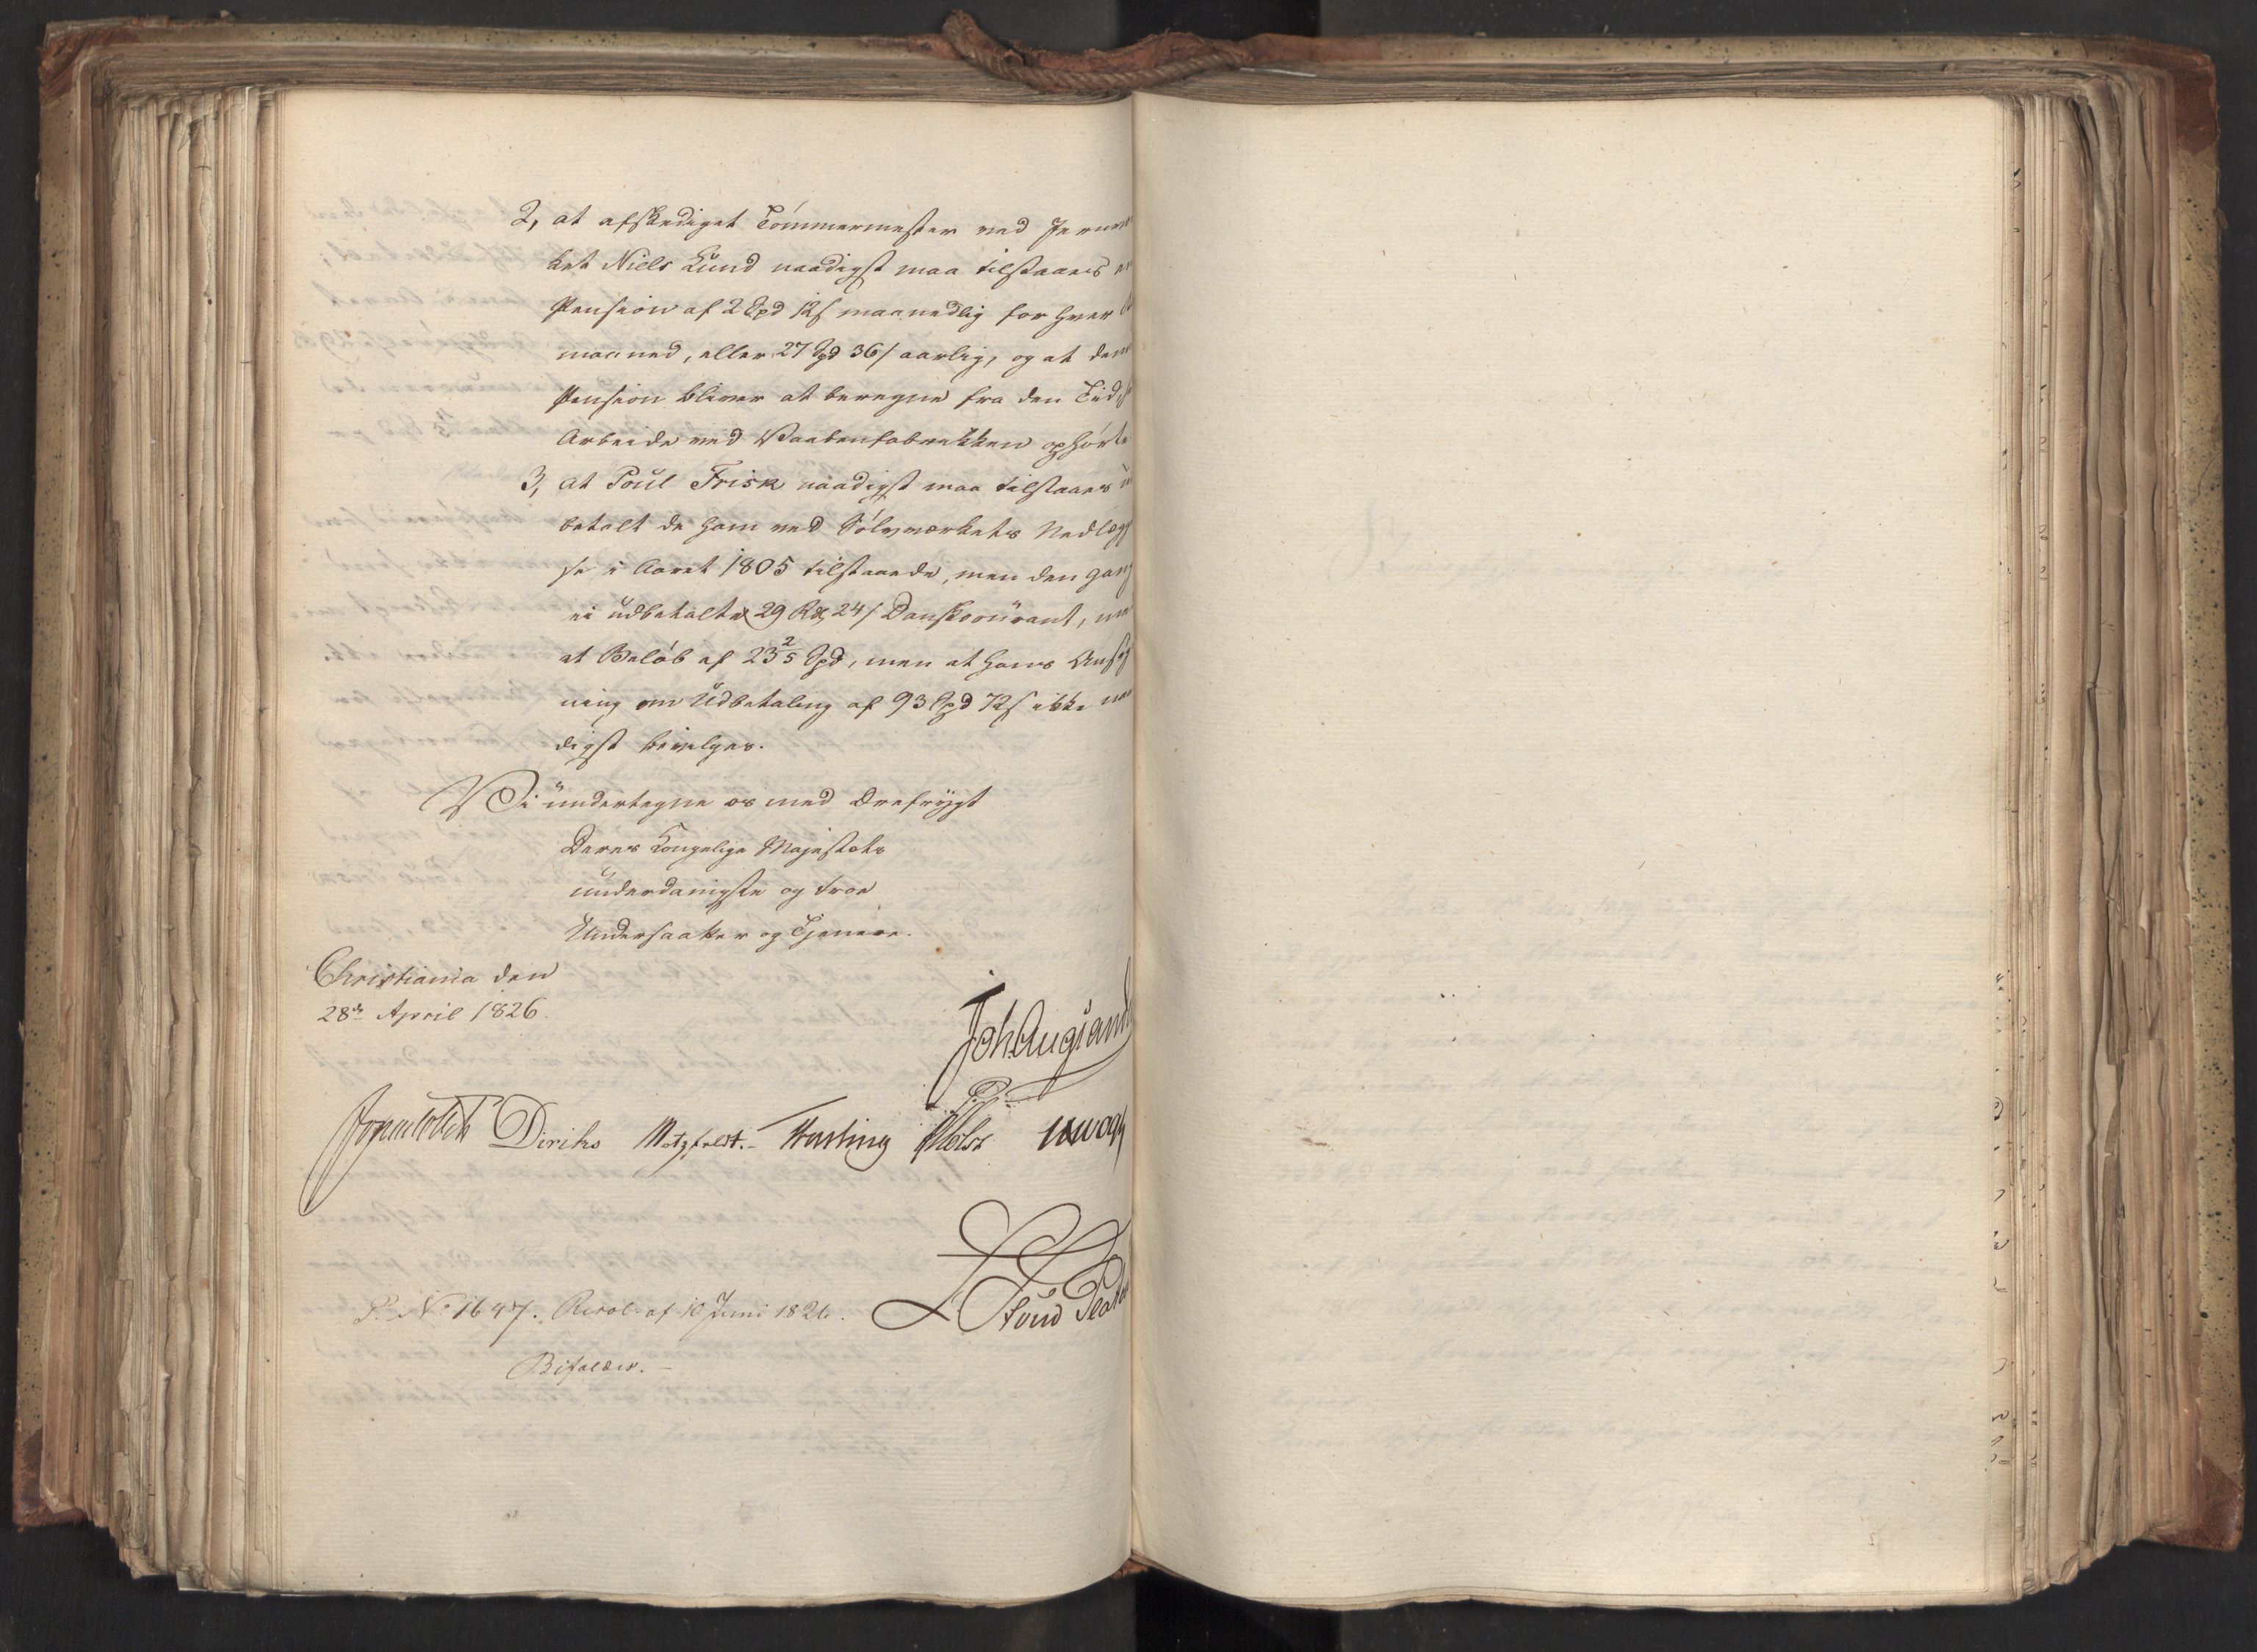 2, at afskediget Tömmermester ved Jernvær
ket Niels Lund naadigst maa tilstaaes en
Pension af 2 Spd 12 s maanedlig for hver
maaned, eller 27 Spd 36 s aarlig, og at denne
Pension bliver at beregne fra den Tiid,
Arbeide ved Vaabenfabrikken ophörte
3, at Poul Frisk naadigst maa tilstaaes u
betalt de ham ved Sölvværkets Nedlæg
se i Aaret 1805 tilstaaede, men den gang
ei udbetalte 29 Rd 24 s Danskcourant, med
et Belöb af 23 2/5 Spd, men at hans Ansög
ning om Udbetaling af 93 Spd 72 s ikke naa
digst bevilges.
Vi undertegne os med Ærefrygt
Deres Kongelige Majestæts
underdanigste og troe
Undersaatter og Tjenere.
Christiania den
28de April 1826
Joh. Aug. Sand
Diriks Motzfeldt. Fasting Holst
P. No 1647. Resol. af 10 Juni 1826.
Bifaldes.